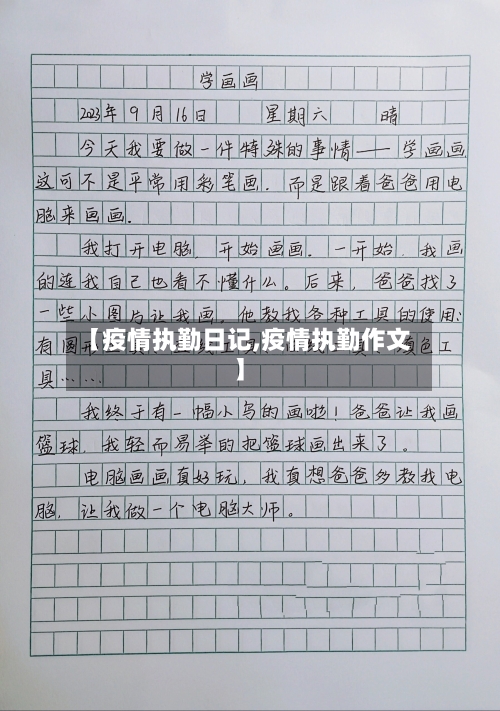 学画画
2023年9月16日 星期六 晴
今天我要做一件特殊的事情——学画画
这可不是平常用彩笔画，而是跟着爸爸用电
脑来画画．
我打开电脑，开始画画．一开始，我画
的连我自己也看不懂什么。后来，爸爸找了
一些小图片让我画，他教我各种工具的使用：
有圆
【疫情执勤日记,疫情执勤作文
】
色工
具……
我终于有一幅小鸟的画啦！爸爸让我画
篮球，我轻而易举的把篮球画出来了。
电脑画画真好玩，我真想爸爸多教我电
脑，让我做一个电脑大师。